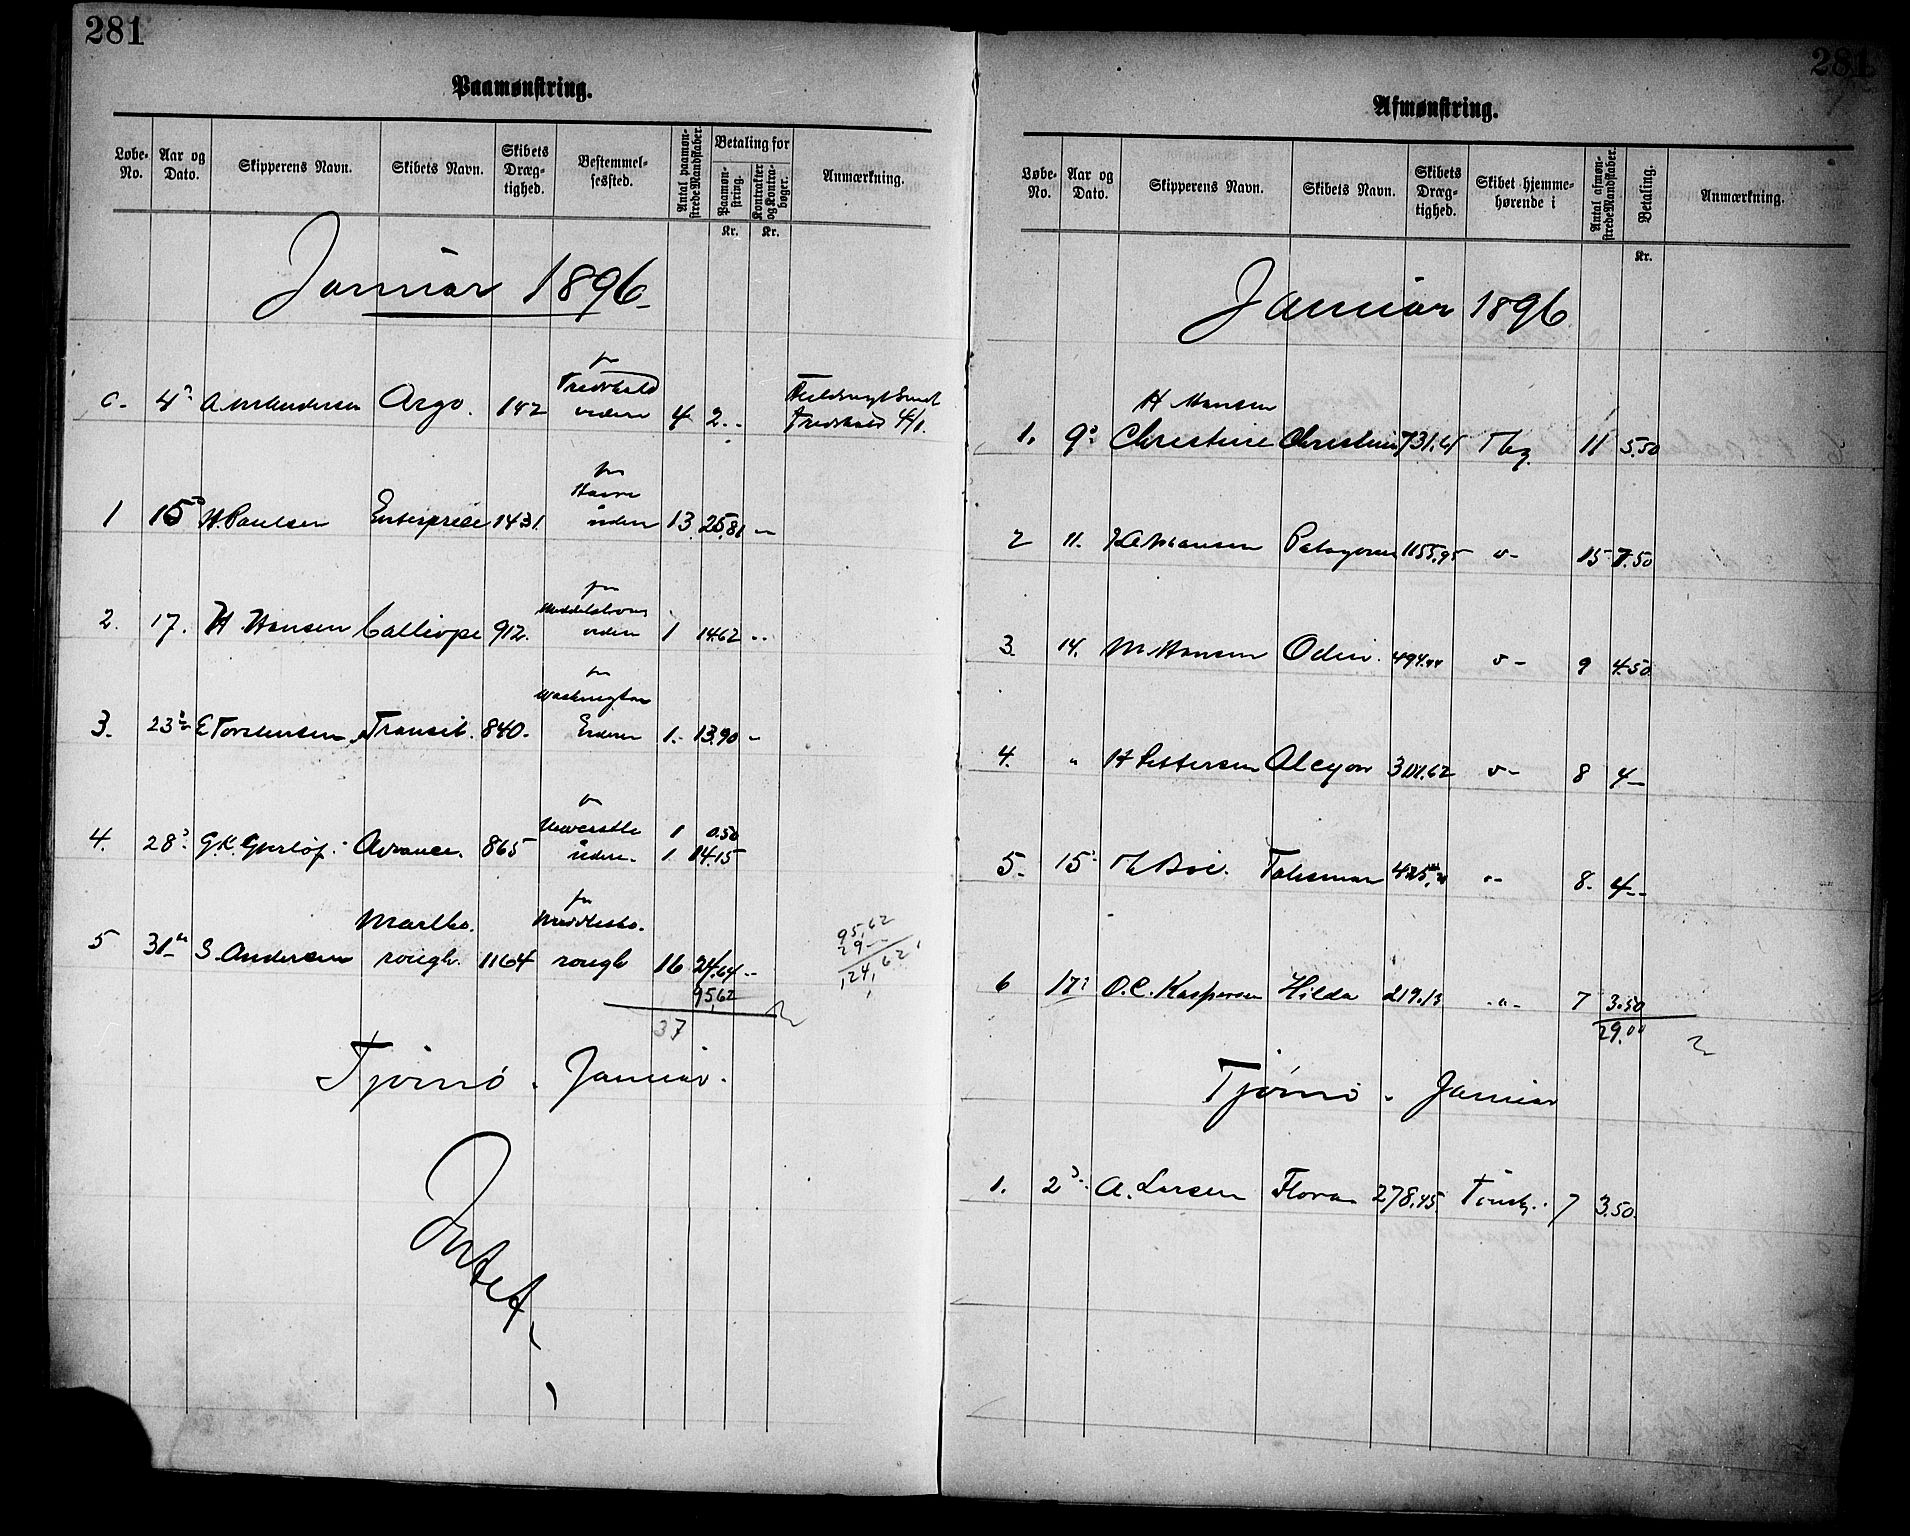 281
Paamønstring.
Løbe-No. Aar og Dato. Skipperens Navn. Skibets Navn. Skibets Dræg-tighed. Bestemmel-sessted. Antal paamøn-strede Mandskaber. Betaling for Paamøn-string. Kontrakter og Kontra-bøger. Anmærkning.
Kr. Kr.
Januar 1896
4 Argo. 142 Fredrhald 4 2
1 15 H Paulsen Enterprise 1431. 13 25,81
2. 17. H. Hansen Calliope 912. 1 14.62
3. 23 E Torstensen Transit. 840. Washington 1. 13.90
4. 28 Avance. 865 Newcastle 1 0.50
1. 14.15
5 31 S. Andersen Marlbo. rough. 1164 Middlesbo. rough 16 24.64
95,62
37
95,62
29
124,62
Tjømø. Januar.
Intet
281
Afmønstring.
Løbe-No. Aar og Dato. Skipperens Navn. Skibets Navn. Skibets Dræg-tighed. Skibet hjemme-hørende i Antal afmøn-strede Mandskaber. Betaling. Anmærkning.
Kr.
Januar 1896
H Hansen
1. 9 Christine Christine 731.41 Tbg. 11 5.50
2 11. Hansen 1155,95 15 7.50
3. 14. M Hansen Odin. 494.44 9 4.50
4. " H Pettersen Alcyon 8 4
5. 15 Talisman 8. 4
6 17 O. C. Kaspersen Hilda 219.13 " 7 3.50
29.00
Tjømø. Januar
1. 2 A. Larsen Flora 278,45. Tønsb. 7 3.50.